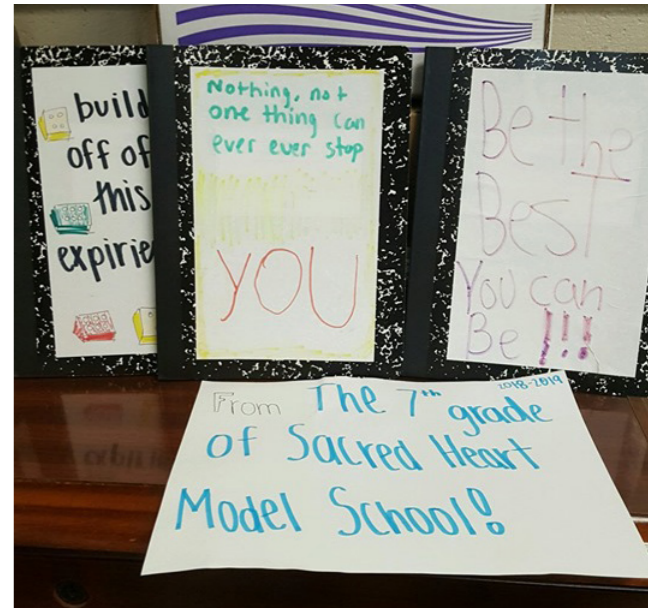 build
off of
this
expirie
Nothing, not
one thing can
ever ever stop
YOU
Be the
Best
You can
Be !!!
2018-2019
From The 7th grade
of Sacred Heart
Model School!